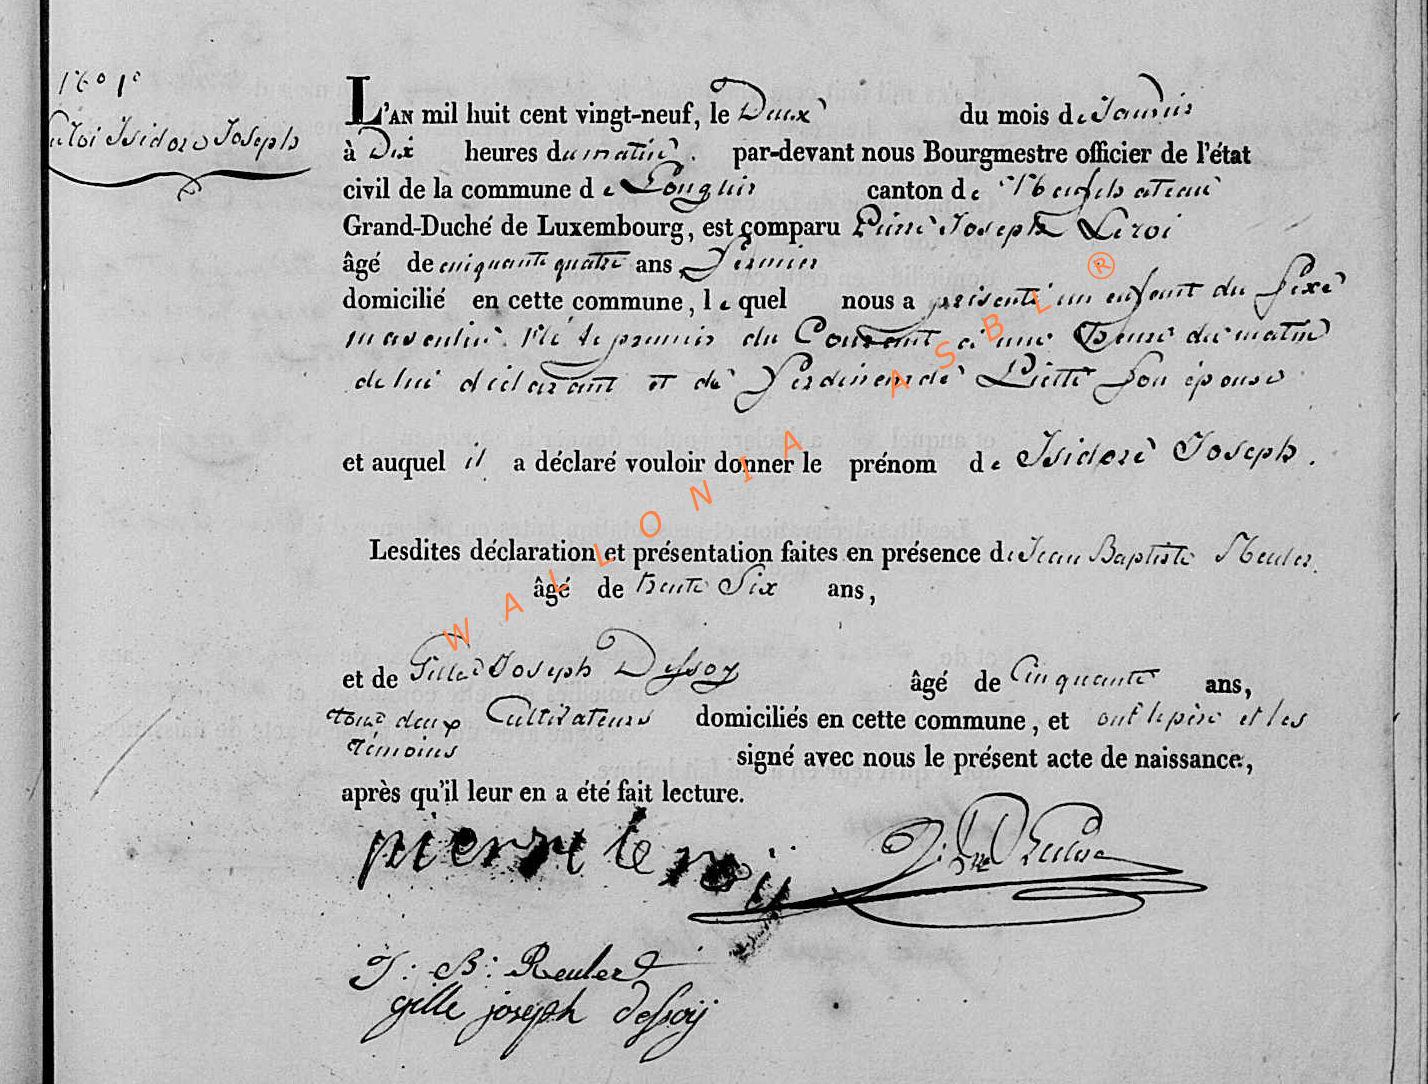 N° 1er
Leroi Isidore Joseph
L'AN mil huit cent vingt-neuf, le Deux du mois de Janvier
à Dix heures du matin. par-devant nous Bourgmestre officier de l'état
civil de la commune de Longlier canton de Neufchateau
Grand-Duché de Luxembourg, est comparu Pierre Joseph Leroi
âgé de cinquante quatre ans, Fermier
domicilié en cette commune, lequel nous a présenté un enfant du sexe
masculin. Né le premier du Courant à une heure du matin
de lui déclarant et de Ferdinande Liette son épouse
et auquel il a déclaré vouloir donner le prénom de Isidore Joseph.
Lesdites déclaration et présentation faites en présence de Jean Baptiste Reuler
âgé de trente Six ans,
et de Gille Joseph Dessoy âgé de Cinquante ans,
tous deux Cultivateurs domiciliés en cette commune, et ont le père et les
témoins signé avec nous le présent acte de naissance,
après qu'il leur en a été fait lecture.
pierre le roij
J: B: Reuler
gille joseph dessoij
WALLONIA ASBL ®